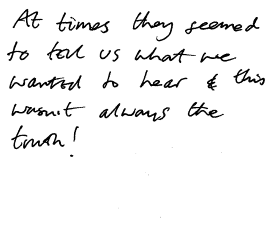 At times they seemed
to tell us what we
wanted to hear & this
wasn't always the
truth!